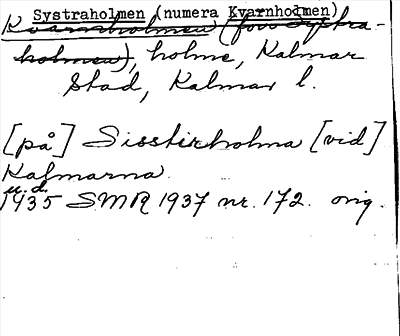 Systraholmen (numera Kvarnholmen)
Kvarnholmen (förr Systra-
holmen), holme, Kalmar
Stad, Kalmar l.
[på] Sisstirholma [vid]
Kalmarna.
u.d.
1435 SMR 1937 nr. 172. orig.